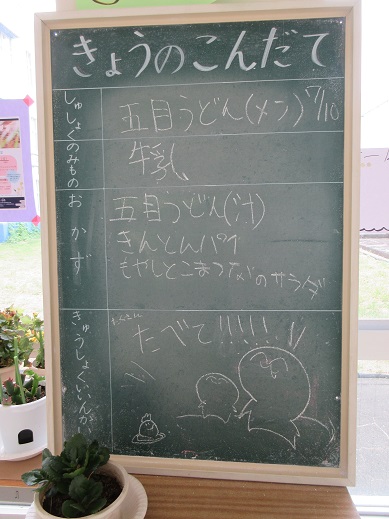 きょうのこんだて
しゅしょく
五目うどん(メン) 7/10
のみもの
牛乳
おかず
五目うどん(汁)
きんとんパイ
もやしとこまつなのサラダ
きゅうしょくいいんか
たくさん
たべて!!!!!!